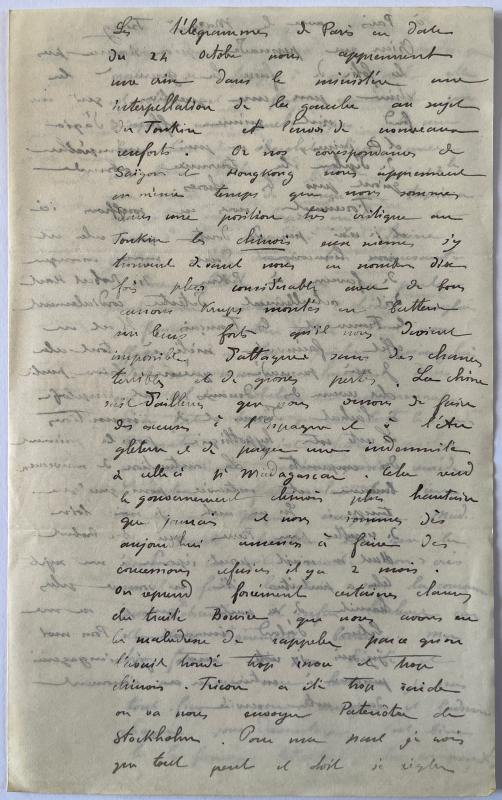 Les télégrammes de Paris en date
du 24 Octobre nous apprennent
une crise dans le ministère une
interpellation de la gauche au sujet
du Tonkin et l'envoi de nouveaux
renforts. Or nos correspondances de
Saigon et Hongkong nous apprennent
en même temps que nous sommes
dans une position très critique au
Tonkin les chinois eux mêmes s'y
trouvent devant nous en nombre dix
fois plus considérable avec de bons
canons Krups montés en batterie
sur leurs forts qu'il nous devient
impossible d'attaquer sans des chances
terribles et de grosses pertes. La chine
sait d'ailleurs que nous venons de faire
des excuses à l'Espagne et à l'An
gleterre et de payer une indemnité
à celle ci pr Madagascar. Cela rend
le gouvernement chinois plus hautain
que jamais et nous sommes dès
aujourd'hui amenés à faire des
concessions refusées il y a 2 mois.
On reprend forcément certaines clauses
du traité Bourée que nous avons eu
la maladresse de rappeler parce qu'on
l'avait trouvé trop mou et trop
chinois. Tricou a été trop raide
on va nous envoyer Patenôtre de
Stockholm. Pour ma part je crois
que tout peut et doit se régler